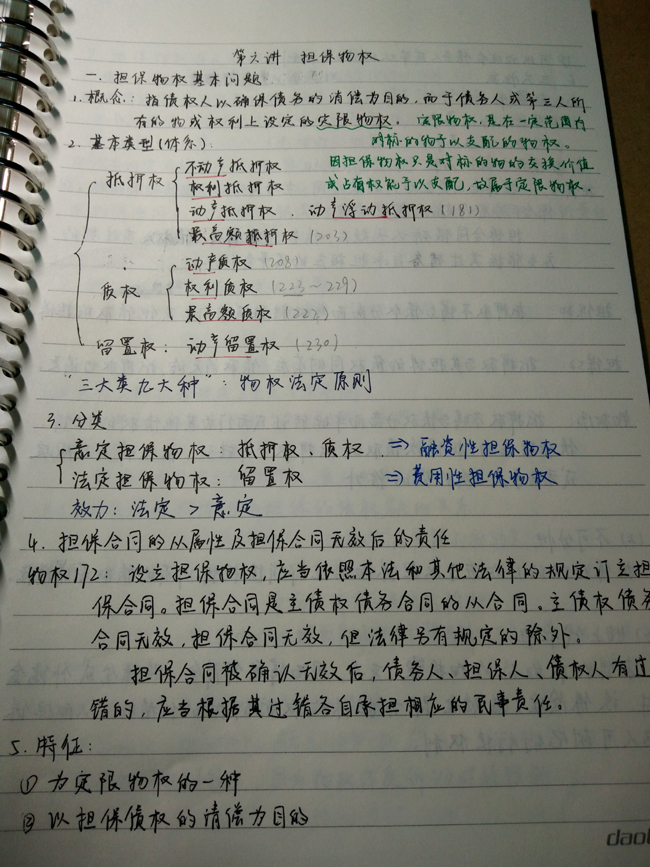 第六讲 担保物权
一. 担保物权基本问题
1. 概念: 指债权人以确保债务的清偿为目的, 而于债务人或第三人所
有的物或权利上设定的定限物权. 定限物权, 是在一定范围内
对标的物予以支配的物权.
2. 基本类型(体系):
因担保物权只是对标的物的交换价值
或占有权能予以支配, 故属于定限物权.
抵押权
不动产抵押权
权利抵押权
动产抵押权 . 动产浮动抵押权 (181)
最高额抵押权 (203)
质权
动产质权 (208)
权利质权 (223~229)
最高额质权 (222)
留置权: 动产留置权 (230)
"三大类九大种": 物权法定原则
3. 分类
意定担保物权: 抵押权、质权 ⇒ 融资性担保物权
法定担保物权: 留置权 ⇒ 费用性担保物权
效力: 法定 > 意定
4. 担保合同的从属性及担保合同无效后的责任
物权172: 设立担保物权, 应当依照本法和其他法律的规定订立担
保合同。担保合同是主债权债务合同的从合同。主债权债务
合同无效, 担保合同无效, 但法律另有规定的除外。
担保合同被确认无效后, 债务人、担保人、债权人有过
错的, 应当根据其过错各自承担相应的民事责任。
5. 特征:
① 为定限物权的一种
② 以担保债权的清偿为目的